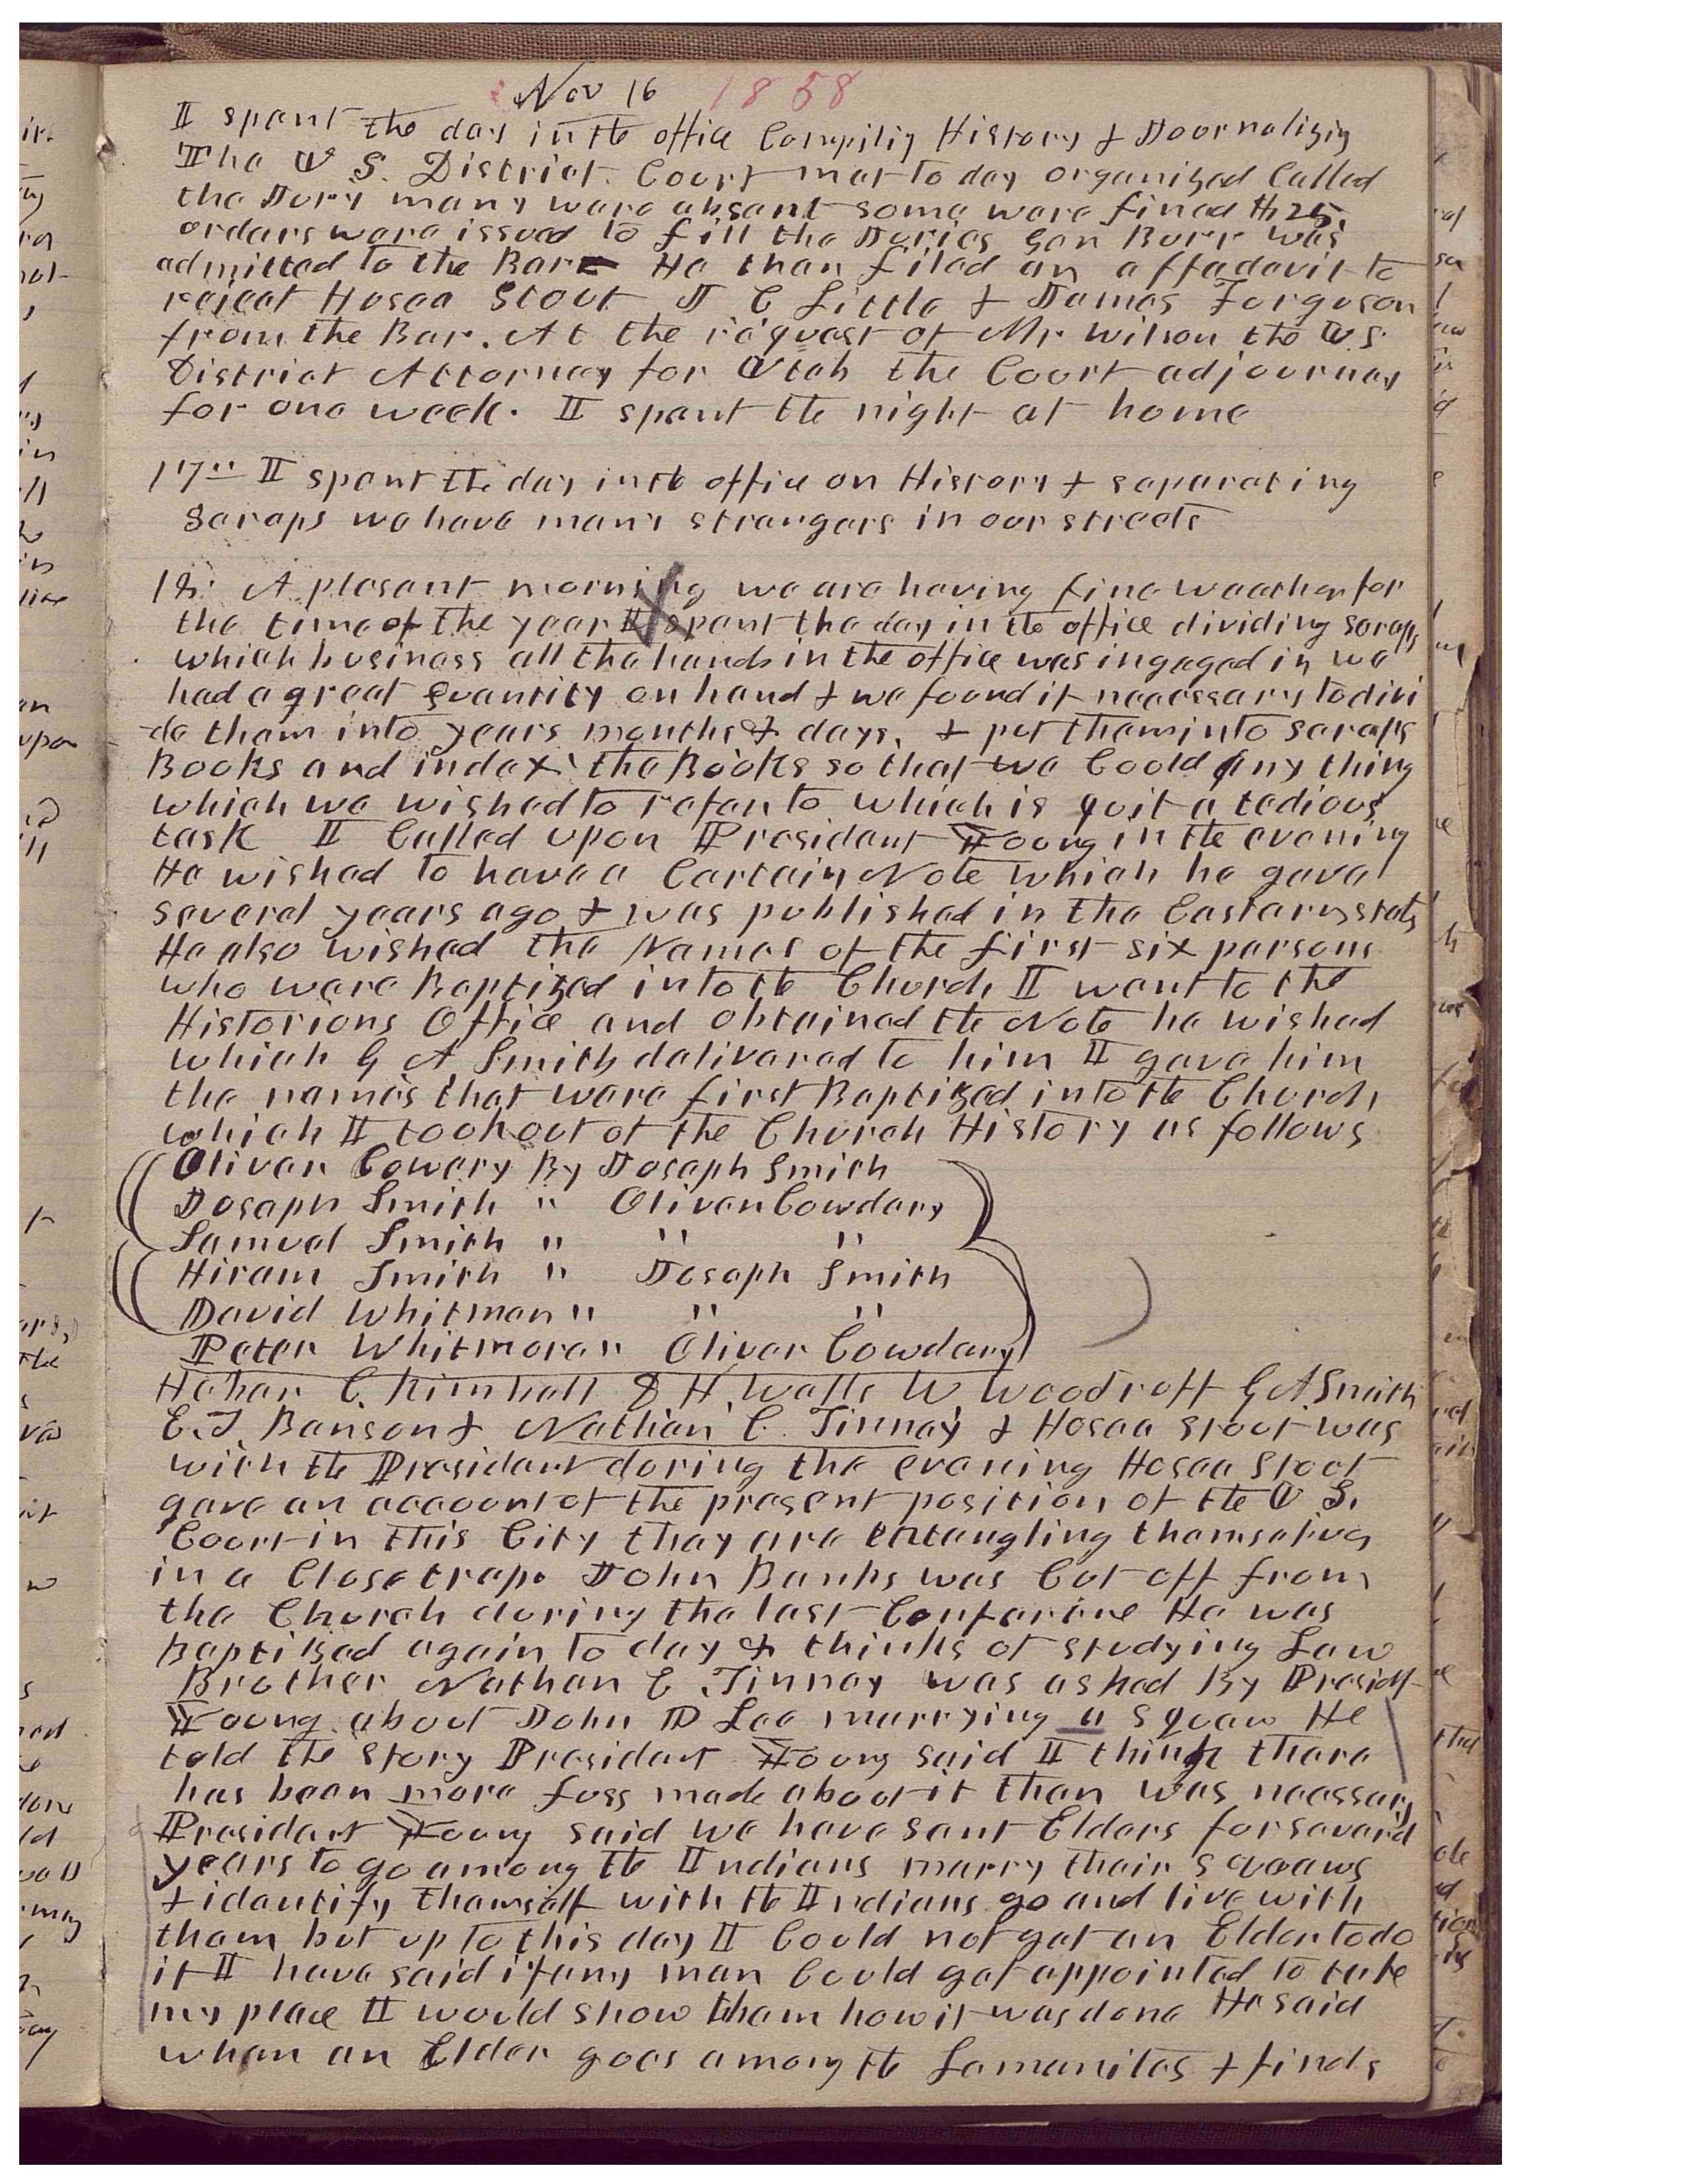 Nov 16 1858
I spent the day in the office Compiling History & Journalizing
The U S. District Court met to day organized Called
the Jury many were absent some were fined $25.
orders were issued to fill the Juries Gen Burr was
admitted to the Bar He then filed an affadavit to
reject Hosea Stout J C Little & James Ferguson
from the Bar. At the request of Mr Wilson the U.S.
District Attorney for Utah the Court adjourned
for one week. I spent the night at home
17th I spent the day in the office on History & separating
Scraps we have many strangers in our streets
18. A plesant morning we are having fine weather for
the time of the year I spent the day in the office dividing scraps
which business all the hands in the office was ingaged in we
had a great quantity on hand & we found it necessary to divi
de them into years months & days. & put them into scraps
Books and index the Books so that we Could any thing
which we wished to refer to which is quit a tedious
task I Called upon President Young in the evening
He wished to have a Certain Note which he gave
several years ago & was published in the Eastern states
He also wished the Names of the first six persons
who were Baptized into the Church I went to the
Historians Office and obtained the Note he wished
which G A Smith delivered to him I gave him
the names that were first Baptized into the Church
which I took out of the Church History as follows
Oliver Cowery By Joseph Smith
Joseph Smith " Oliver Cowdery
Samuel Smith " " "
Hiram Smith " Joseph Smith
David Whitmer " " "
Peter Whitmore " Oliver Cowdery
Heber C. Kimball D H Wells W Woodruff G A Smith
E. T. Benson & Nathan C. Tinney & Hosea Stout was
with the President during the evening Hosea Stout
gave an account of the present position of the U S.
Court in this City they are entangling themselves
in a Close trap. John Banks was Cut off from
the Church during the last Conference He was
Baptized again to day & thinks of studying Law
Brother Nathan C Tinney was asked By Presidt
Young about John D Lee marrying a squaw He
told the story President Young said I think there
has been more fuss made about it than was necessary
President Young said we have sent Elders for several
years to go among the Indians marry their squaws
& identify themself with the Indians go and live with
them but up to this day I Could not get an Elder to do
it I have said if any man Could get appointed to take
my place I would show them how it was done He said
when an Elder goes among the Lamanites & finds